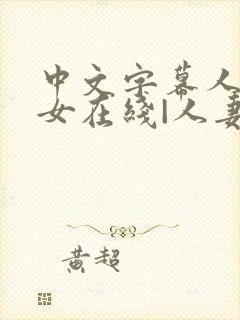 中文字幕人
女在线|人妻
黄超